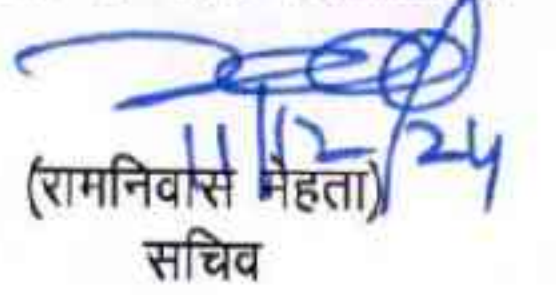 11/12/24
(रामनिवास मेहता)
सचिव